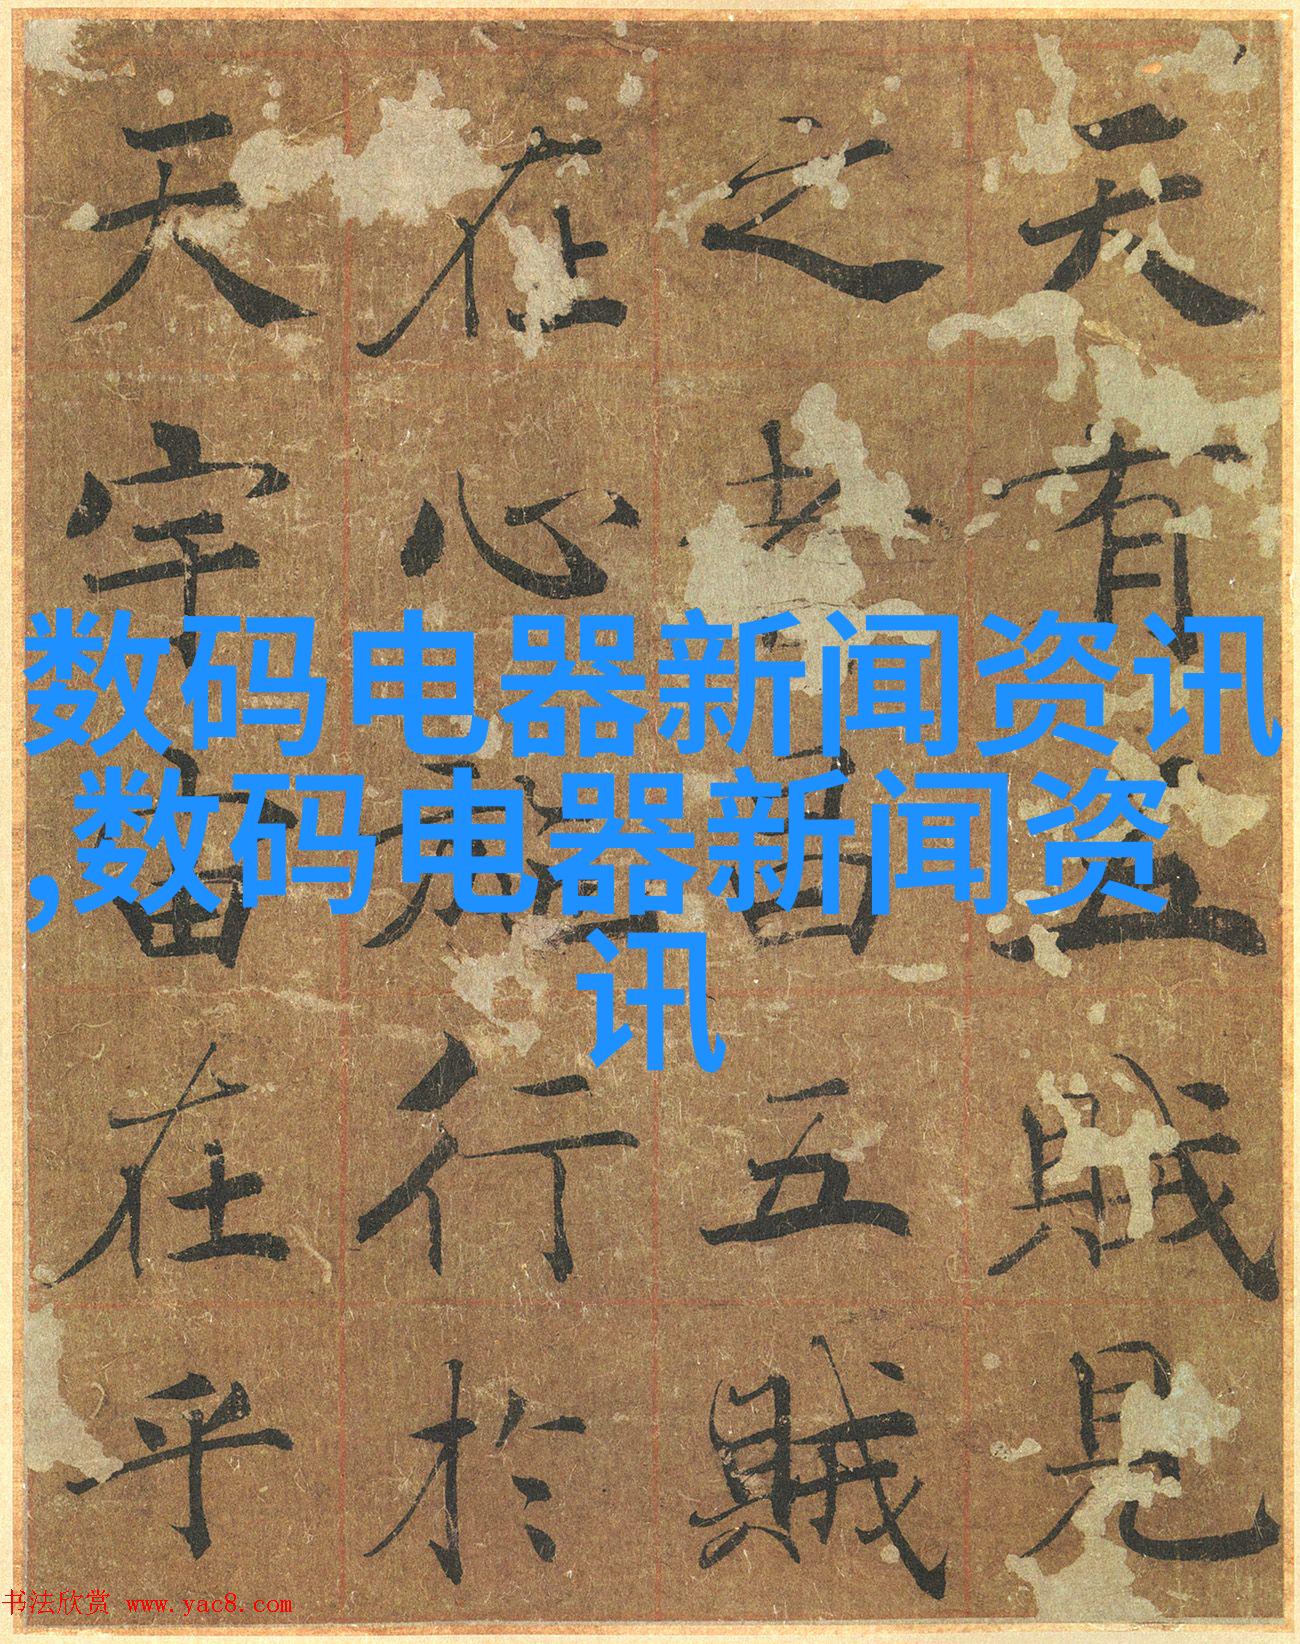 天有五賊見
之者昌五賊
在心施行於
天宇宙在乎
数码电器新闻资讯
,数码电器新闻资
讯
书法欣赏 www.yac8.com